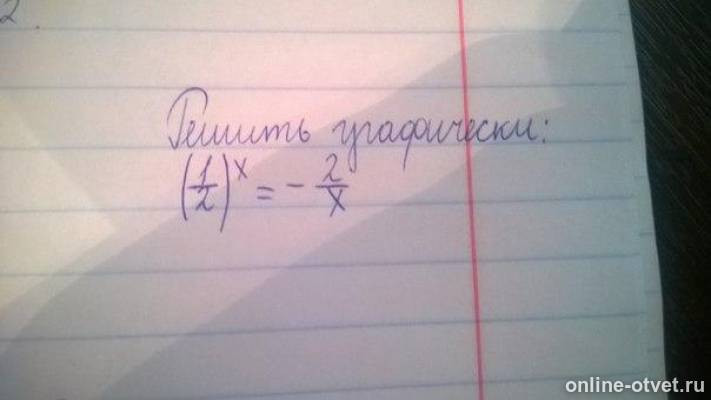 2
Решить графически:
(1/2)^x = - 2/x
online-otvet.ru